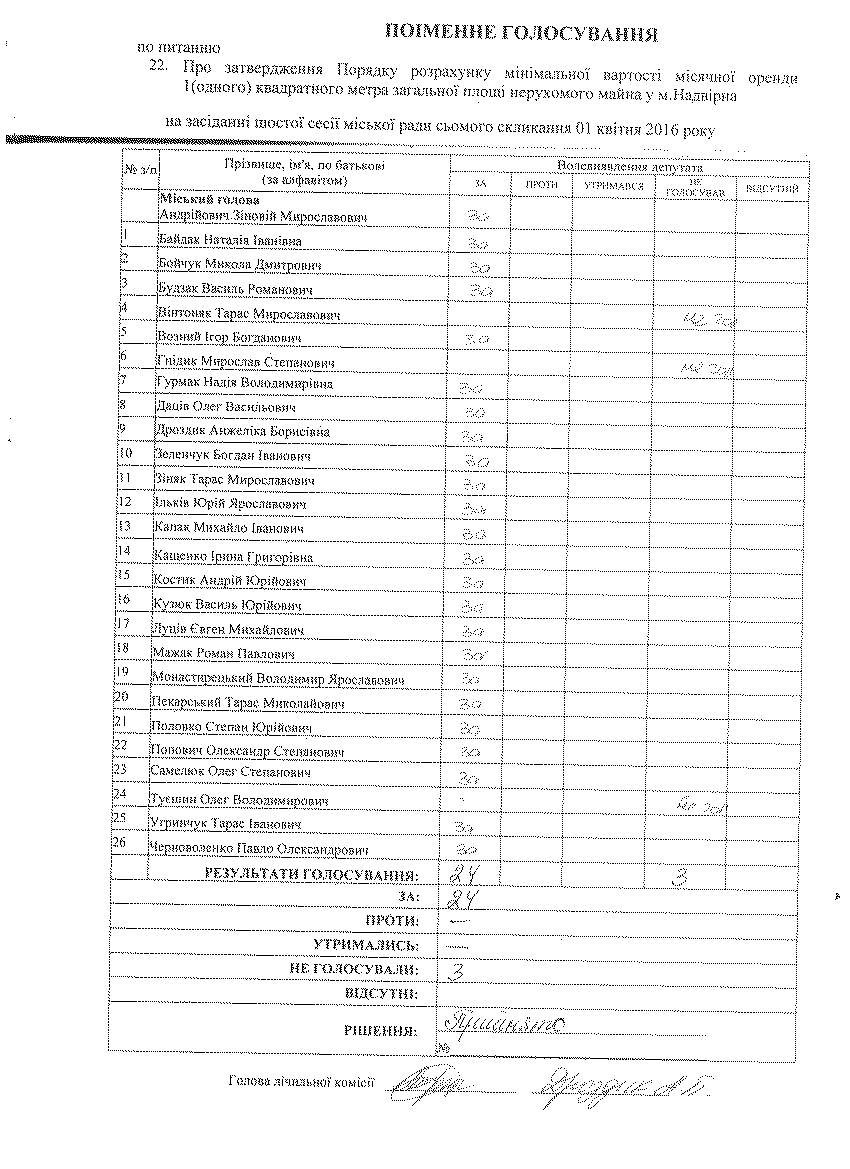 ПОІМЕННЕ ГОЛОСУВАННЯ
по питанню
22. Про затвердження Порядку розрахунку мінімальної вартості місячної оренди
1(одного) квадратного метра загальної площі нерухомого майна у м.Надвірна
на засіданні шостої сесії міської ради сьомого скликання 01 квітня 2016 року
№ з/п Прізвище, ім'я, по батькові Волевиявлення депутата
(за алфавітом) ЗА ПРОТИ УТРИМАВСЯ НЕ ГОЛОСУВАВ ВІДСУТНІЙ
Міський голова
Андрійович Зіновій Мирославович За
1 Байдак Наталія Іванівна За
2 Бойчук Микола Дмитрович За
3 Будзак Василь Романович За
4 Вінтоняк Тарас Мирославович не гол
5 Возний Ігор Богданович За
6 Гнідик Мирослав Степанович не гол
7 Гурмак Надія Володимирівна За
8 Даців Олег Васильович За
9 Дроздик Анжеліка Борисівна За
10 Зеленчук Богдан Іванович За
11 Зіняк Тарас Мирославович За
12 Ільків Юрій Ярославович За
13 Капак Михайло Іванович За
14 Кащенко Ірина Григорівна За
15 Костик Андрій Юрійович За
16 Кузюк Василь Юрійович За
17 Луців Євген Михайлович За
18 Мажак Роман Павлович За
19 Монастирецький Володимир Ярославович За
20 Пекарський Тарас Миколайович За
21 Половко Степан Юрійович За
22 Попович Олександр Степанович За
23 Самелюк Олег Степанович За
24 Олег Володимирович - не гол
25 Угринчук Тарас Іванович За
26 Черноволенко Павло Олександрович За
РЕЗУЛЬТАТИ ГОЛОСУВАННЯ: 24 3
ЗА: 24
ПРОТИ: —
УТРИМАЛИСЬ: —
НЕ ГОЛОСУВАЛИ: 3
ВІДСУТНІ:
РІШЕННЯ: Прийнято
№
Голова лічильної комісії Дроздик А.Б.